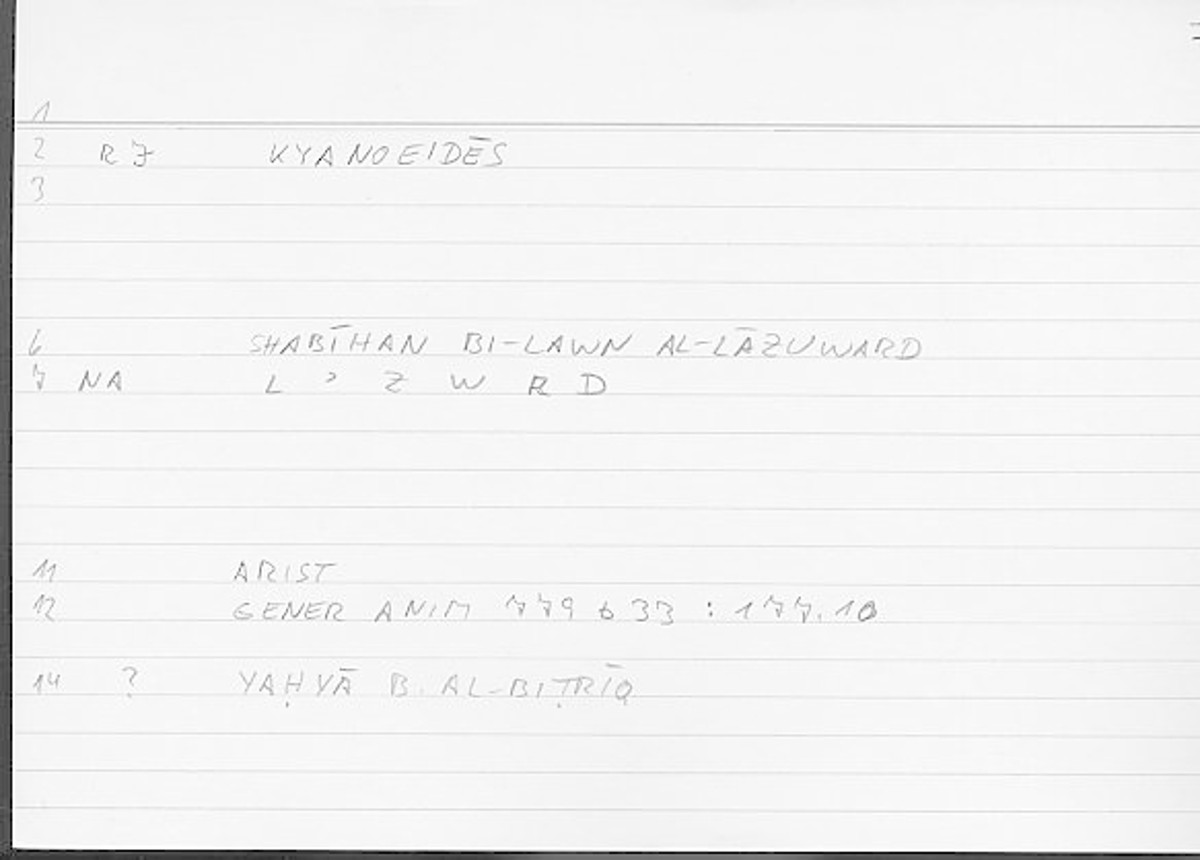 1
2 RJ KYANOEIDĒS
3
6 SHABĪHAN BI-LAWN AL-LĀZUWARD
7 NA L ʾ Z W R D
11 ARIST
12 GENER ANIM 779 b 33 : 177.10
14 ? YAḤYĀ B. AL-BIṬRĪQ